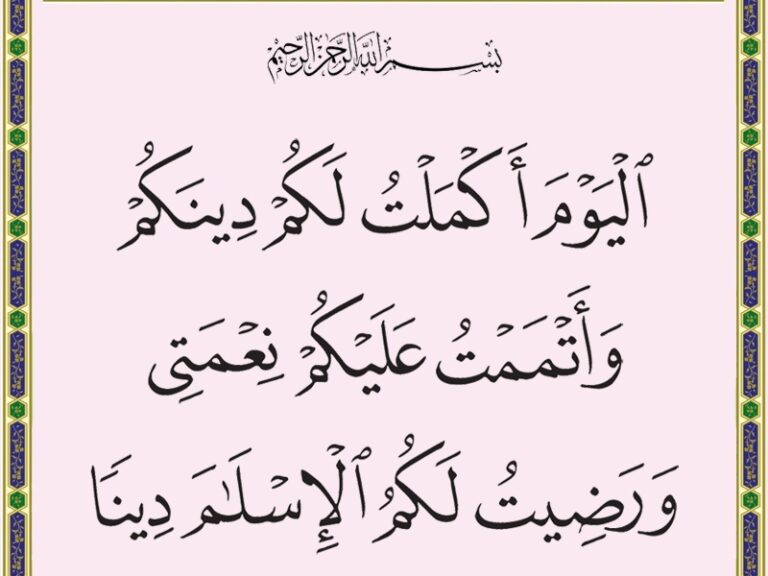 بسم الله الرحمن الرحيم
ٱلْيَوْمَ أَكْمَلْتُ لَكُمْ دِينَكُمْ
وَأَتْمَمْتُ عَلَيْكُمْ نِعْمَتِى
وَرَضِيتُ لَكُمُ ٱلْإِسْلَٰمَ دِينًا